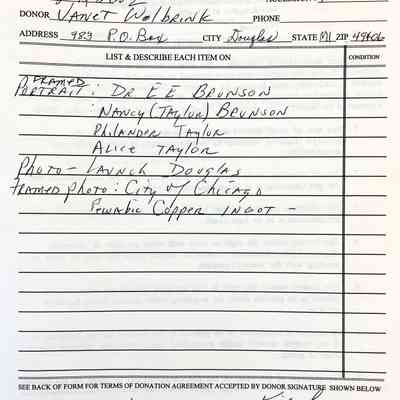 DONOR Janet Wolbrink PHONE
ADDRESS 983 P.O. Box CITY Douglas STATE MI ZIP 49406
LIST & DESCRIBE EACH ITEM ON CONDITION
FRAMED
PORTRAIT: DR E E BRUNSON
: NANCY (TAYLOR) BRUNSON
Philander Taylor
ALICE TAYLOR
PHOTO - LAUNCH DOUGLAS
FRAMED photo: City of Chicago
Pewabic Copper INGOT -
SEE BACK OF FORM FOR TERMS OF DONATION AGREEMENT ACCEPTED BY DONOR SIGNATURE SHOWN BELOW